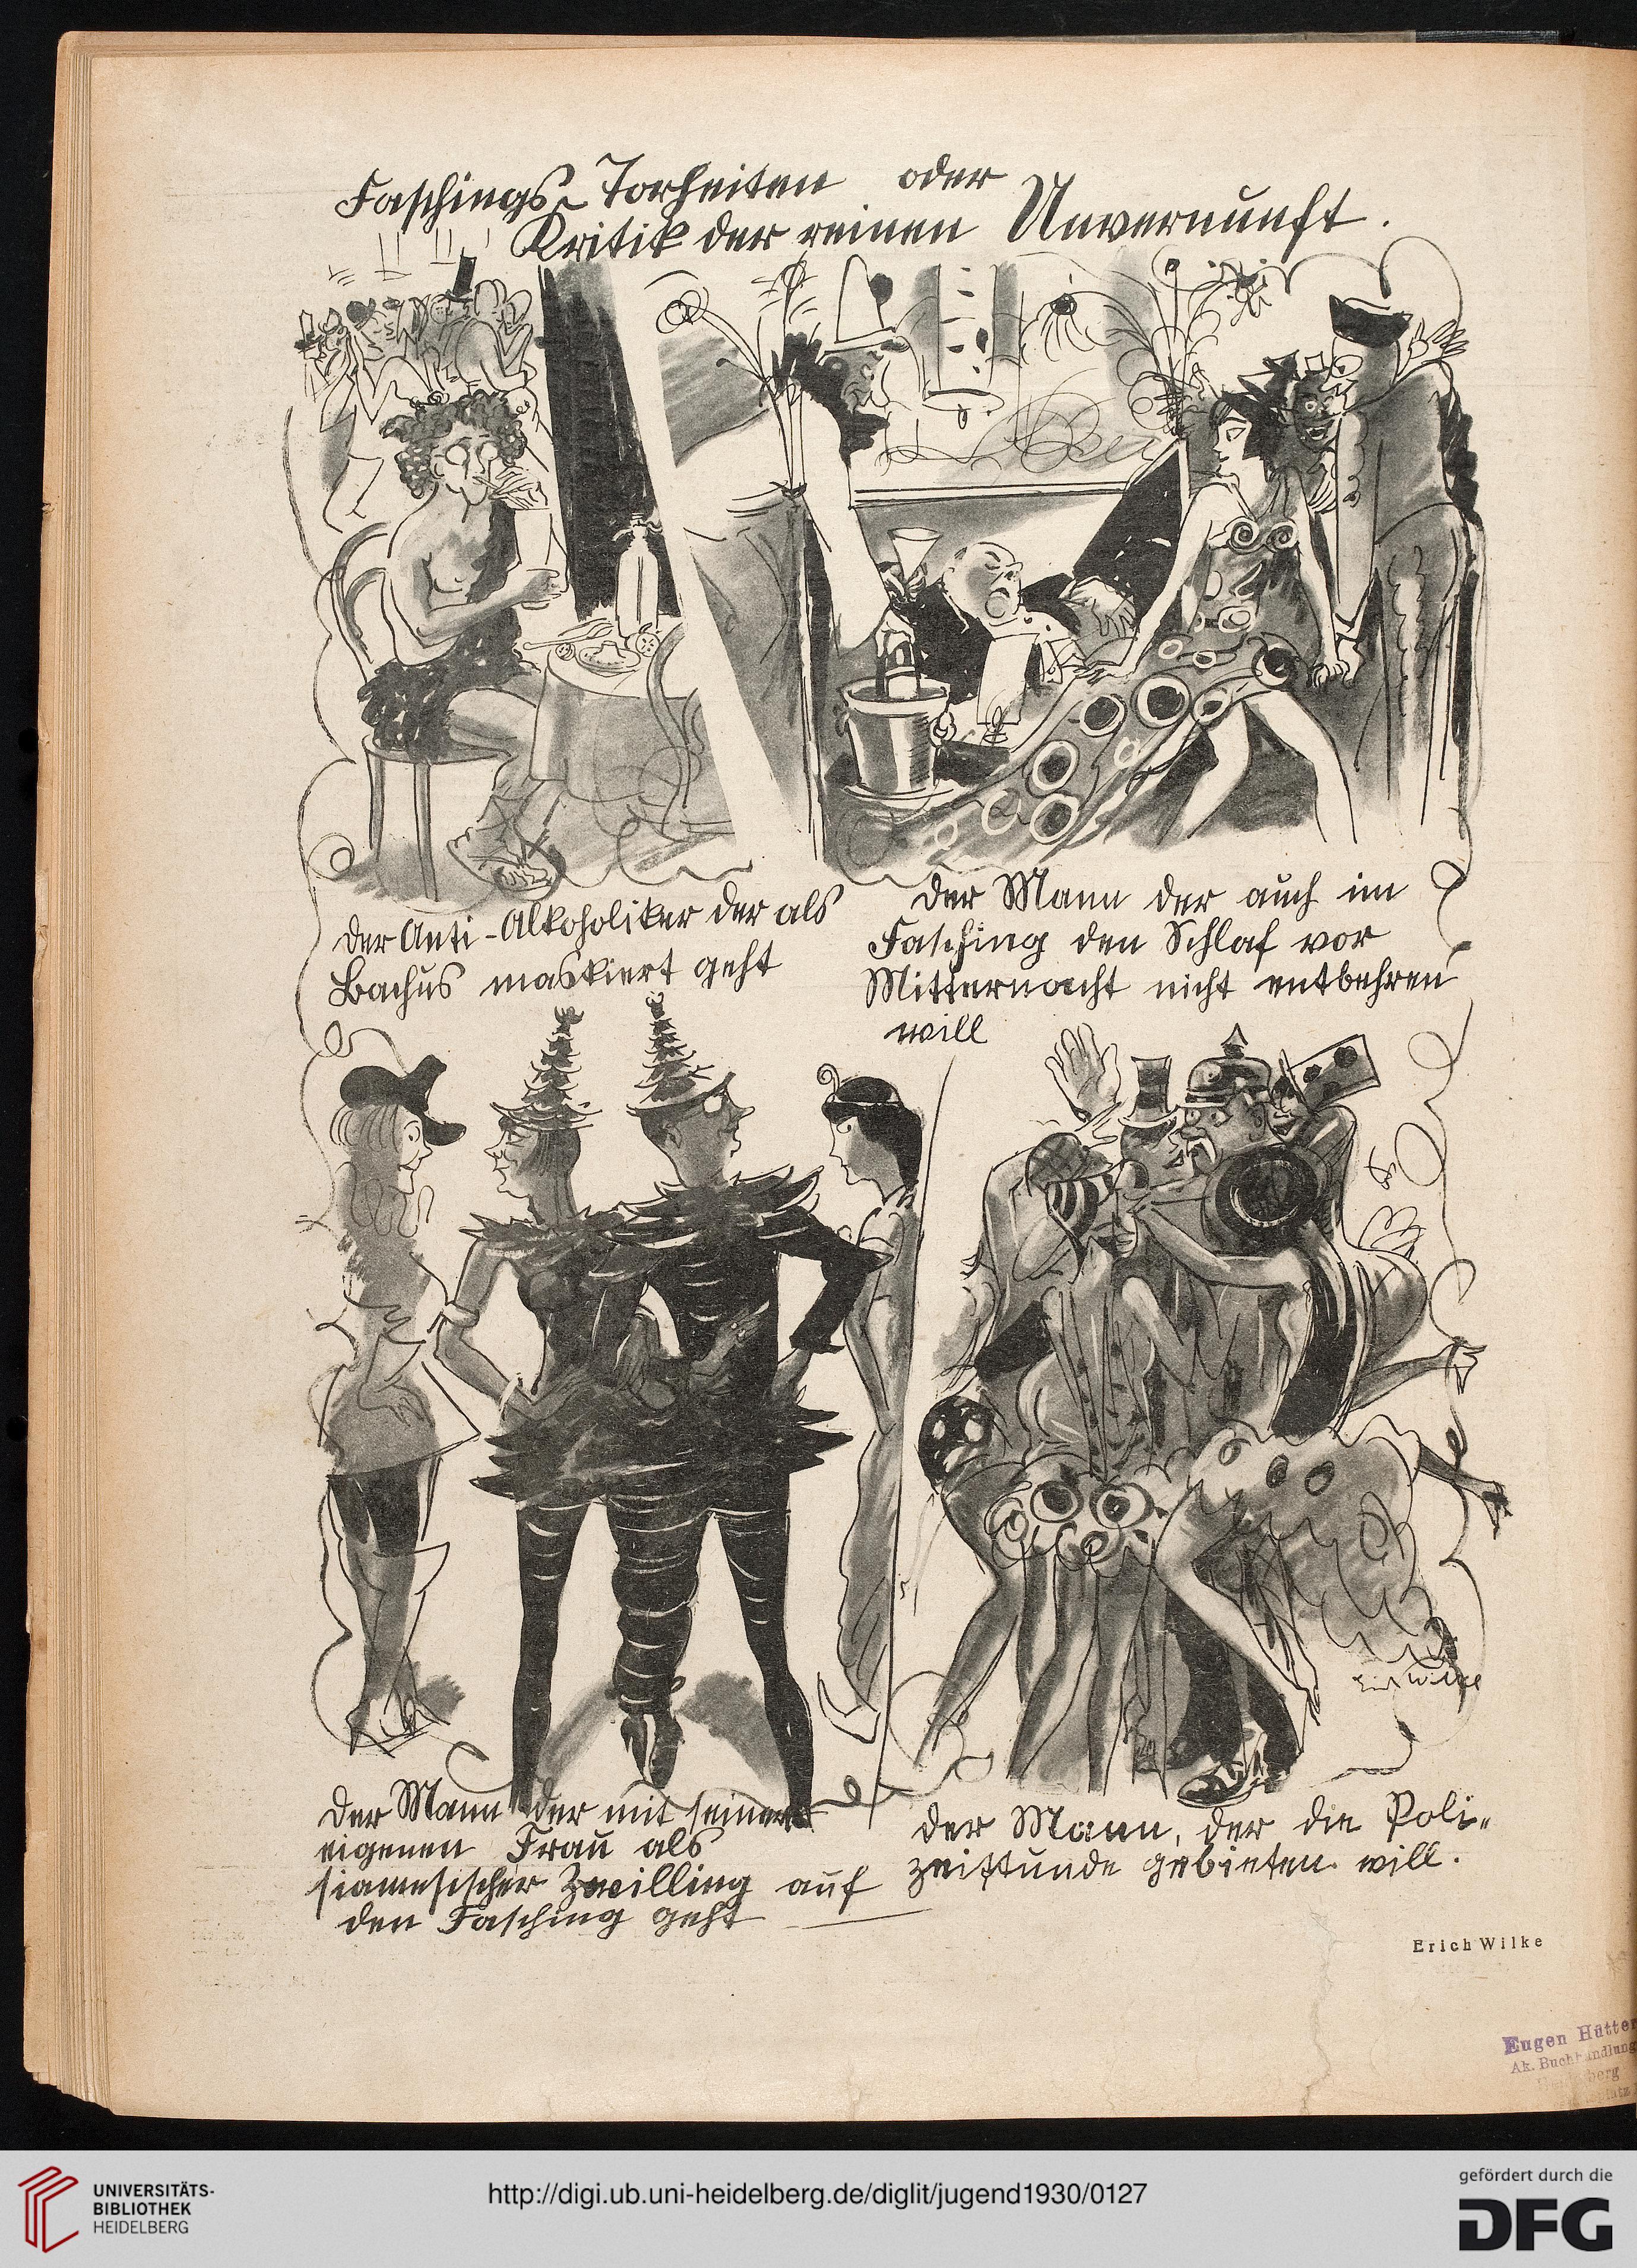 Faschings-Torheiten oder
Kritik der reinen Unvernunft.
Der Anti-Alkoholiker der als
Bachus maskiert geht
Der Mann der auch im
Fasching den Schlaf vor
Mitternacht nicht entbehren
will
Der Mann der mit seiner
eigenen Frau als
siamesischer Zwilling auf
den Fasching geht
Der Mann, der die Poli-
zeistunde gebieten will.
Erich Wilke
Eugen Hütter
Ak. Buchhandlung
UNIVERSITÄTS-
BIBLIOTHEK
HEIDELBERG
http://digi.ub.uni-heidelberg.de/diglit/jugend1930/0127
gefördert durch die
DFG